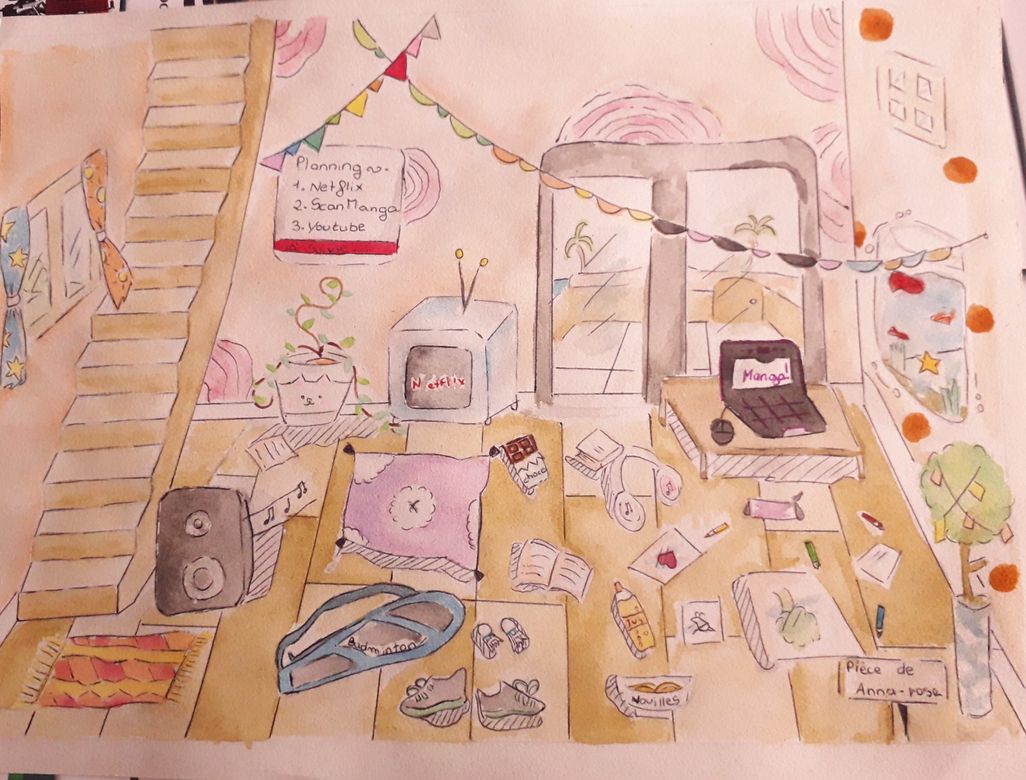 Planning
1. Netflix
2. Scan Manga
3. Youtube
Netflix
Manga!
choco
Jus
Badminton
Nouilles
Pièce de
Anna-rose